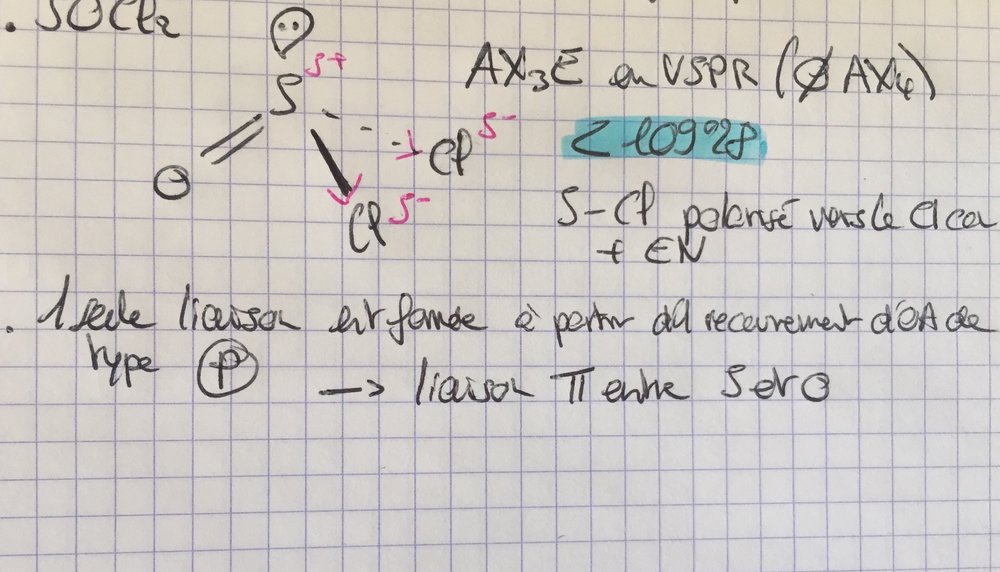 . SOCl2
S δ+
AX3E en VSPR (∅ AX4)
O
Cl δ-
< 109°28
Cl δ-
S-Cl polarisé vers le Cl car
+ EN
. 1 seule liaison est formée à partir du recouvrement d'OA de
type p
→ liaison π entre S et O